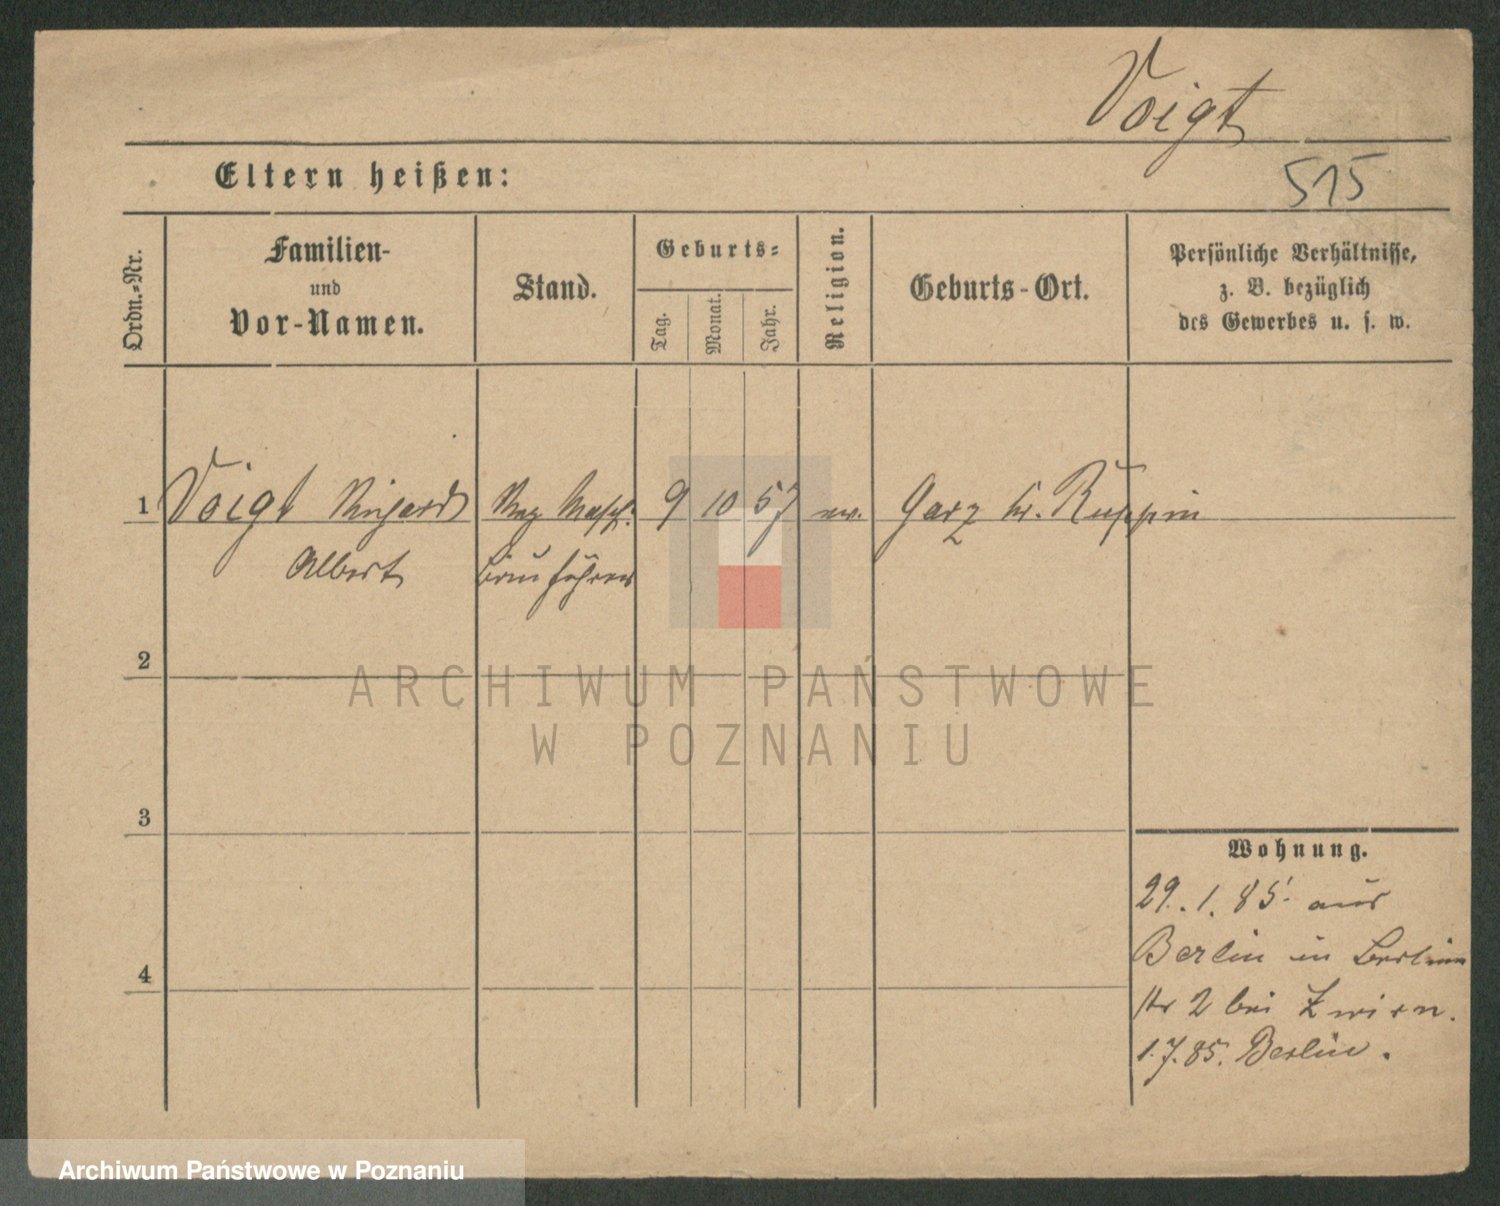 Voigt
515
Eltern heißen:
Ordn.-Nr.
Familien-
und
Vor-Namen.
Stand.
Geburts-
Tag.
Monat.
Jahr.
Religion.
Geburts-Ort.
Persönliche Verhältnisse,
z. B. bezüglich
des Gewerbes u. s. w.
1 Voigt Richard Reg Masch. 9 10 57 ev. Garz Kr. Ruppin
Albert Bauführer
2
ARCHIWUM PAŃSTWOWE
W POZNANIU
3
Wohnung.
29.1.85. aus
Berlin in Berliner
str 2 bei Zwirn.
4
1.7.85. Berlin.
Archiwum Państwowe w Poznaniu